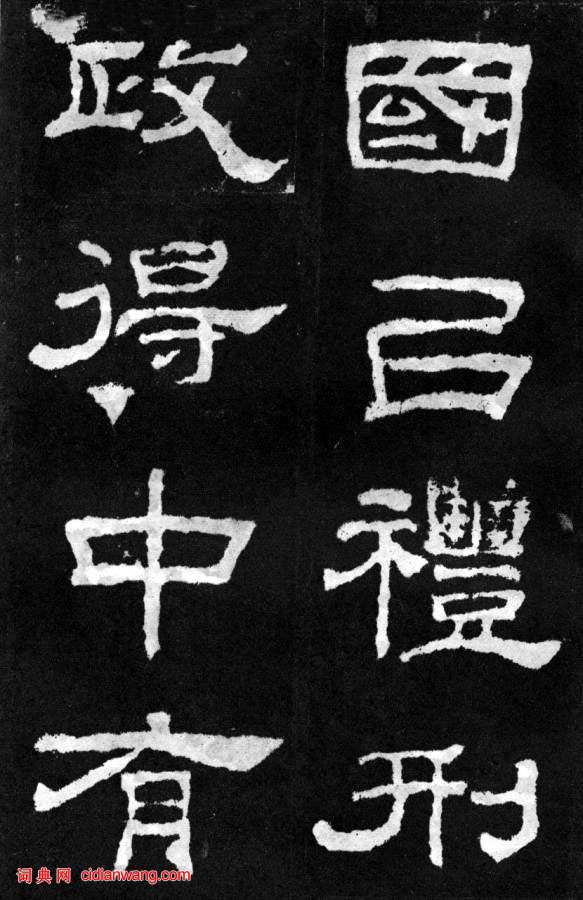 國㠯禮刑
政得中有
词典网 cidianwang.com